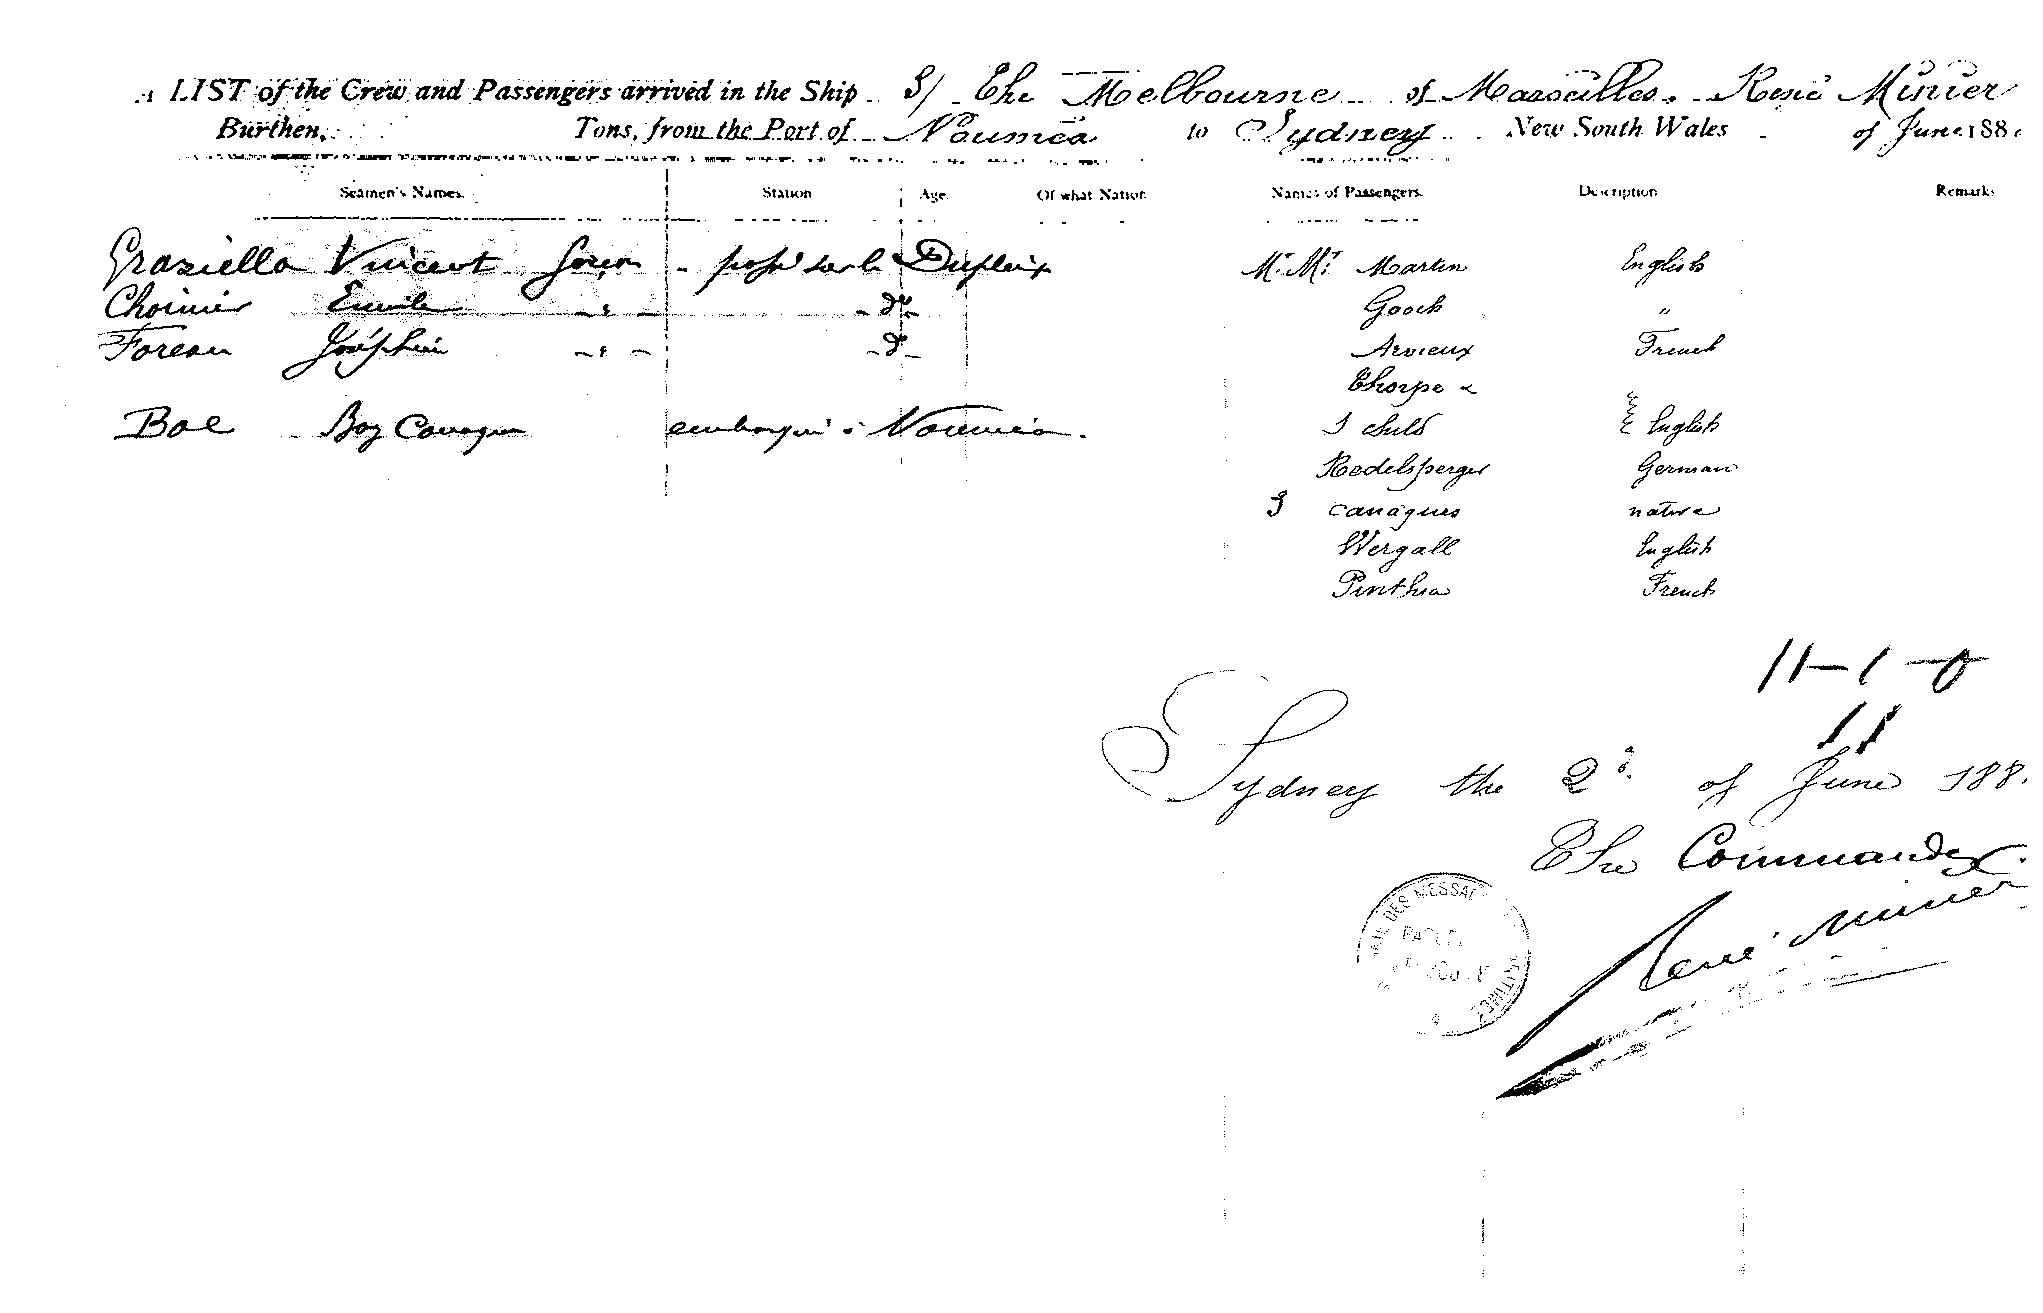 A LIST of the Crew and Passengers arrived in the Ship S/ The Melbourne of Marseilles. René Minier
Burthen, Tons, from the Port of Nouméa to Sydney New South Wales of June 188
Seamen's Names. Station Age Of what Nation Names of Passengers. Description Remarks
Graziella Vincent passé sur le Dupleix Mr. Mr. Martin English
Choinier Emile - " - - do - Gooch "
Foreau Joséphin - " - - do - Arvieux French
Thorpe &
Bae Boy Canaque embarqué à Nouméa. 1 child } English
Redelsperger German
3 canaques native
Wergall English
Pinthea French
11-1-0
11
Sydney the 2d. of June 188
The Commander.
DES MESSA
René Minier